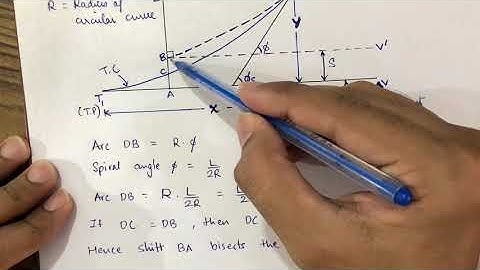 R = Radius of
circular curve
B
φ
V'
S
T.C
C
φc
V
T₁
A
(T.P)
X
Y
Arc DB = R·φ
Spiral angle φ = L/2R
Arc DB = R·L/2R = L
If DC = DB, then DC
Hence shift BA bisects the